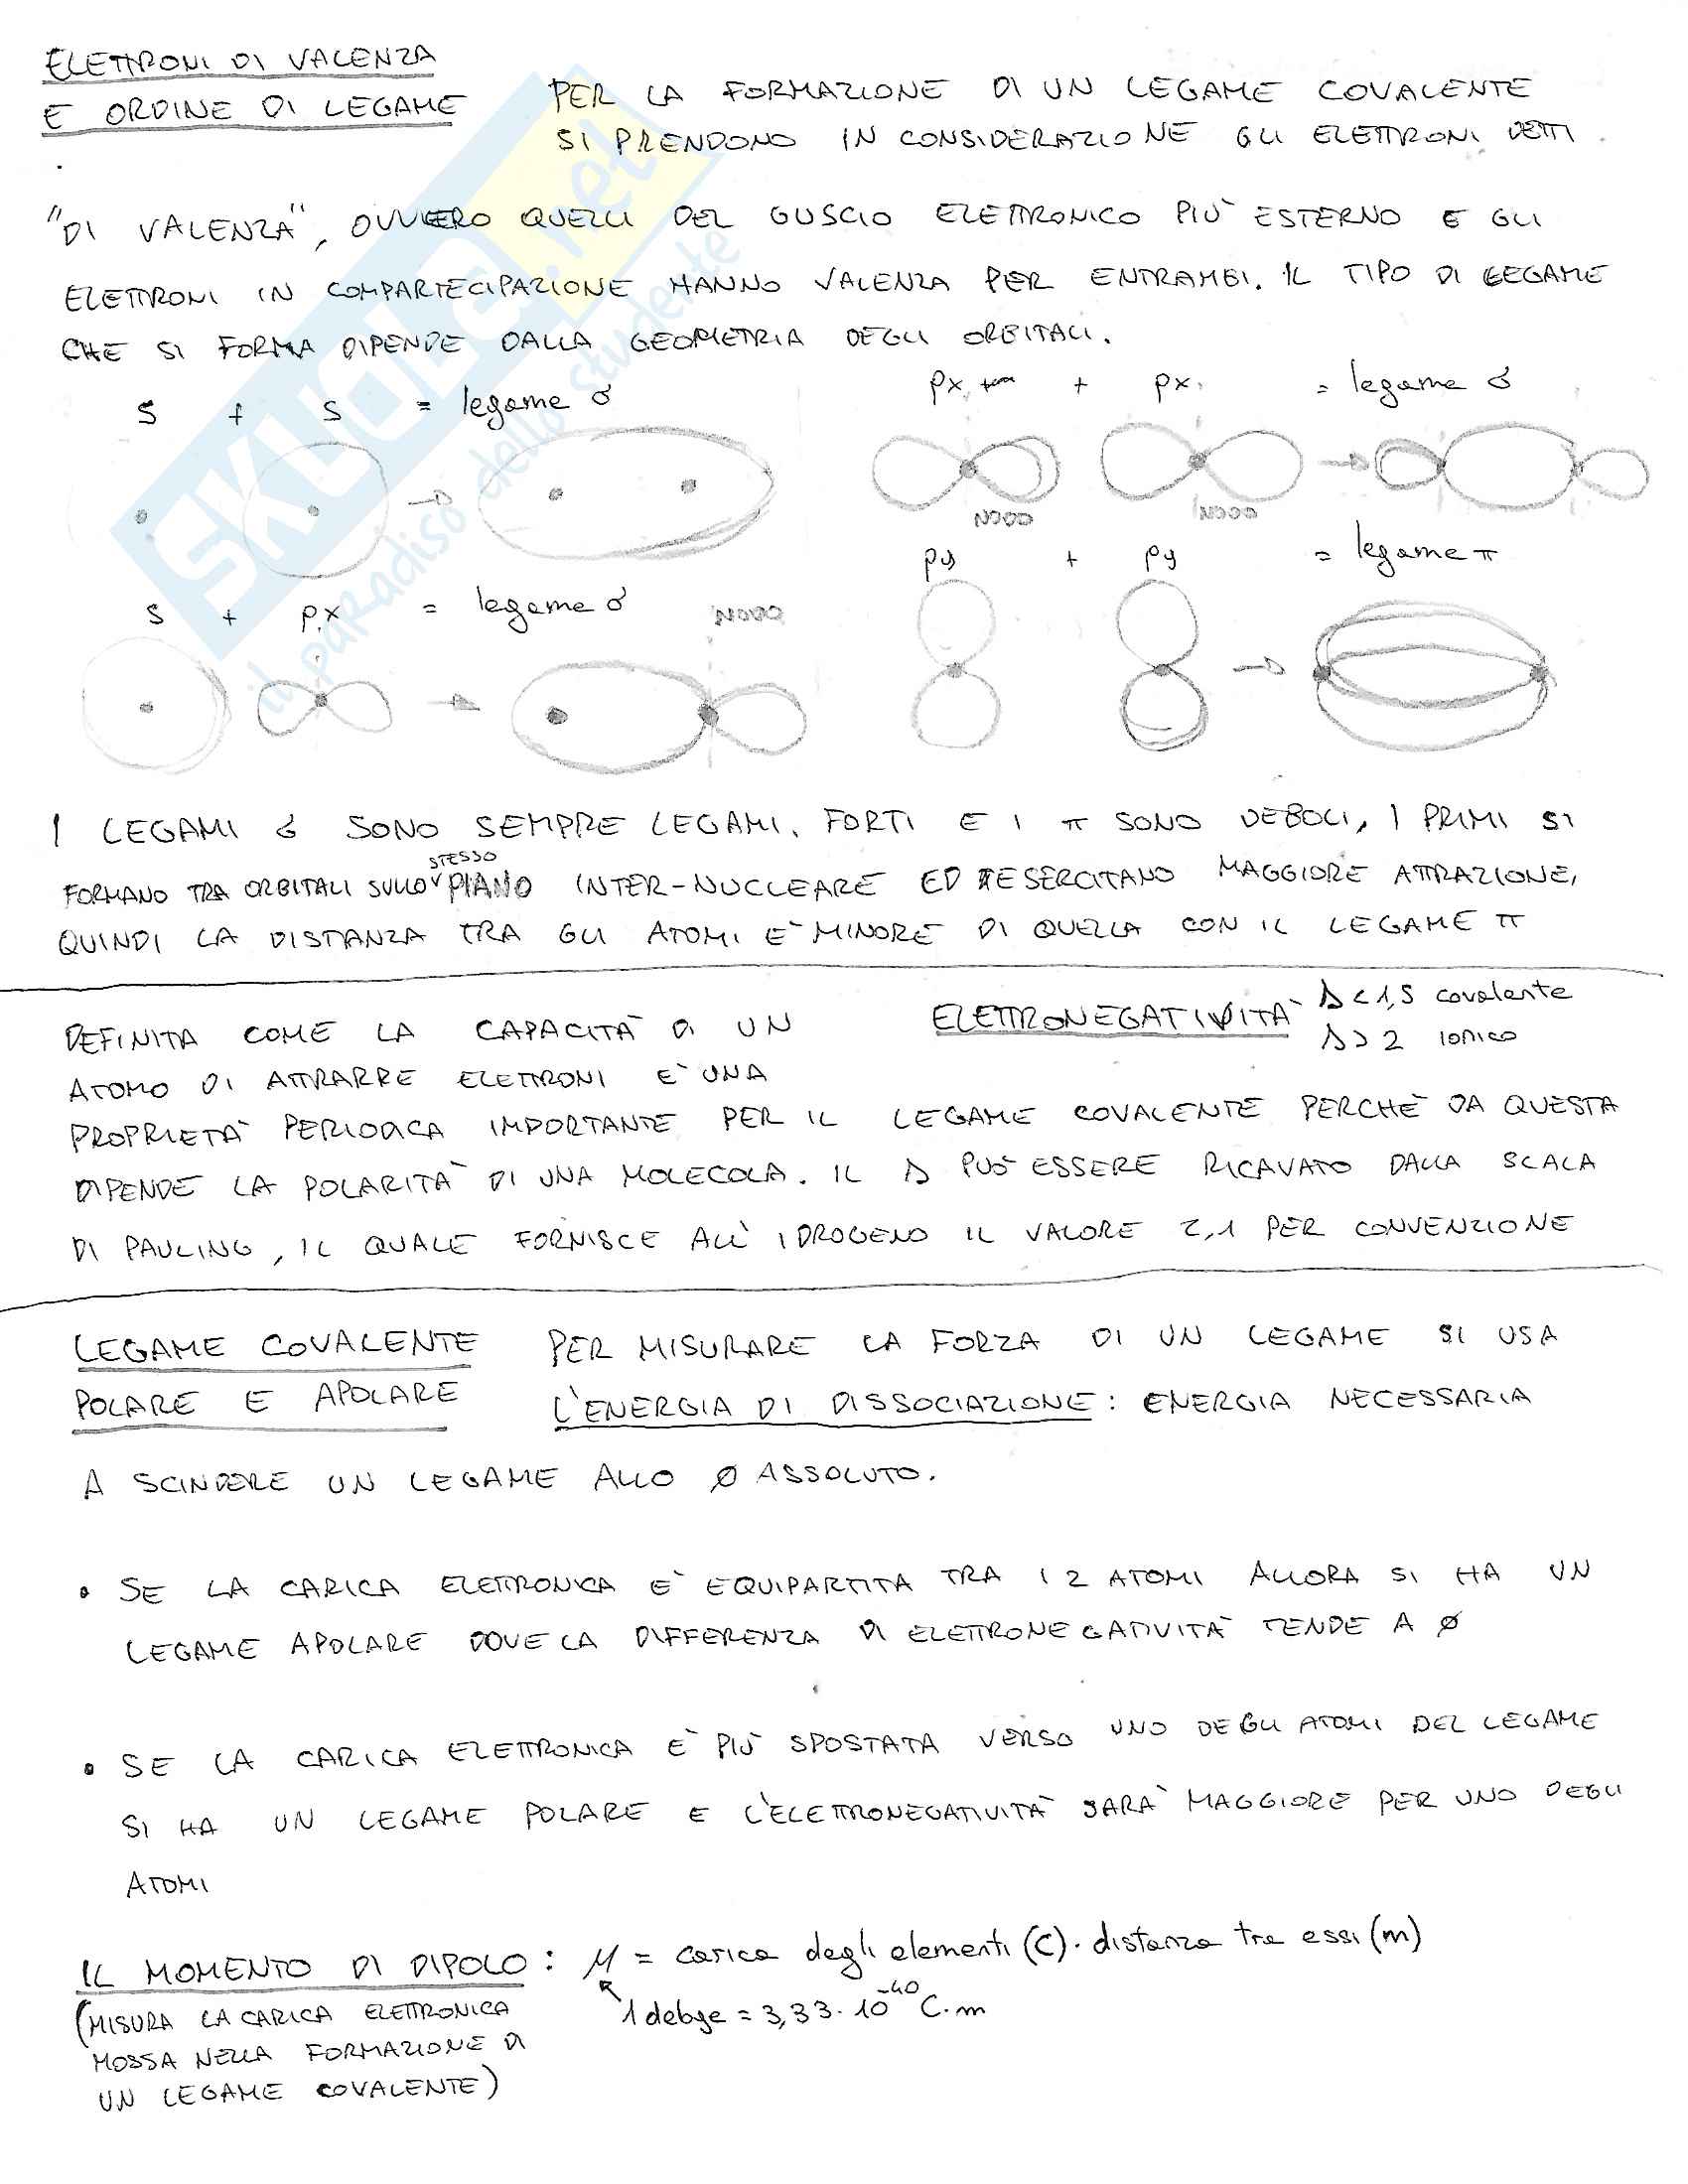 ELETTRONI DI VALENZA
E ORDINE DI LEGAME
PER LA FORMAZIONE DI UN LEGAME COVALENTE
SI PRENDONO IN CONSIDERAZIONE GLI ELETTRONI DETTI
"DI VALENZA", OVVERO QUELLI DEL GUSCIO ELETTRONICO PIÙ ESTERNO E GLI
ELETTRONI IN COMPARTECIPAZIONE HANNO VALENZA PER ENTRAMBI. IL TIPO DI LEGAME
CHE SI FORMA DIPENDE DALLA GEOMETRIA DEGLI ORBITALI.
S + S = legame σ
px + px = legame σ
NODO NODO
py + py = legame π
S + px = legame σ NODO
I LEGAMI σ SONO SEMPRE LEGAMI. FORTI E I π SONO DEBOLI, I PRIMI SI
FORMANO TRA ORBITALI SULLO STESSO PIANO INTER-NUCLEARE ED ESERCITANO MAGGIORE ATTRAZIONE,
QUINDI LA DISTANZA TRA GLI ATOMI E' MINORE DI QUELLA CON IL LEGAME π
ELETTRONEGATIVITÀ Δ < 1,5 covalente
Δ > 2 ionico
DEFINITA COME LA CAPACITÀ DI UN
ATOMO DI ATTRARRE ELETTRONI E' UNA
PROPRIETÀ PERIODICA IMPORTANTE PER IL LEGAME COVALENTE PERCHÈ DA QUESTA
DIPENDE LA POLARITÀ DI UNA MOLECOLA. IL Δ PUÒ ESSERE RICAVATO DALLA SCALA
DI PAULING, IL QUALE FORNISCE ALL'IDROGENO IL VALORE 2,1 PER CONVENZIONE
LEGAME COVALENTE
POLARE E APOLARE
PER MISURARE LA FORZA DI UN LEGAME SI USA
L'ENERGIA DI DISSOCIAZIONE: ENERGIA NECESSARIA
A SCINDERE UN LEGAME ALLO Ø ASSOLUTO.
• SE LA CARICA ELETTRONICA E' EQUIPARTITA TRA I 2 ATOMI ALLORA SI HA UN
LEGAME APOLARE DOVE LA DIFFERENZA DI ELETTRONEGATIVITÀ TENDE A Ø
• SE LA CARICA ELETTRONICA E' PIÙ SPOSTATA VERSO UNO DEGLI ATOMI DEL LEGAME
SI HA UN LEGAME POLARE E L'ELETTRONEGATIVITÀ SARÀ MAGGIORE PER UNO DEGLI
ATOMI
IL MOMENTO DI DIPOLO: μ = carica degli elementi (C) · distanza tra essi (m)
1 debye = 3,33 · 10⁻⁴⁰ C·m
(MISURA LA CARICA ELETTRONICA
MOSSA NELLA FORMAZIONE DI
UN LEGAME COVALENTE)
SKUOLA.net
il paradiso dello studente